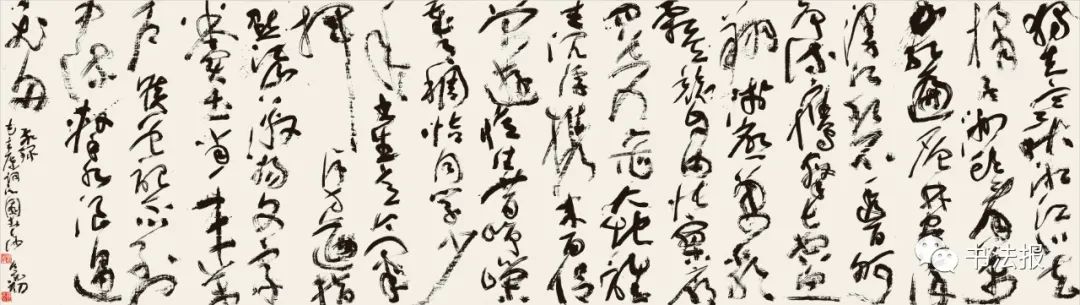 独立寒秋湘江北去
橘子洲头看万山
红遍层林尽染
漫江碧透百舸
争流鹰击长空鱼
翔浅底万类
霜天竞自由怅寥廓
问苍茫大地谁
主沉浮携来百侣
曾游忆往昔峥嵘
岁月稠恰同学少
年书生意气
挥斥方遒指
点江山激扬文字
粪土当年万
户侯曾记否到
中流击水浪遏
飞舟
毛主席词沁园春长沙
书法报